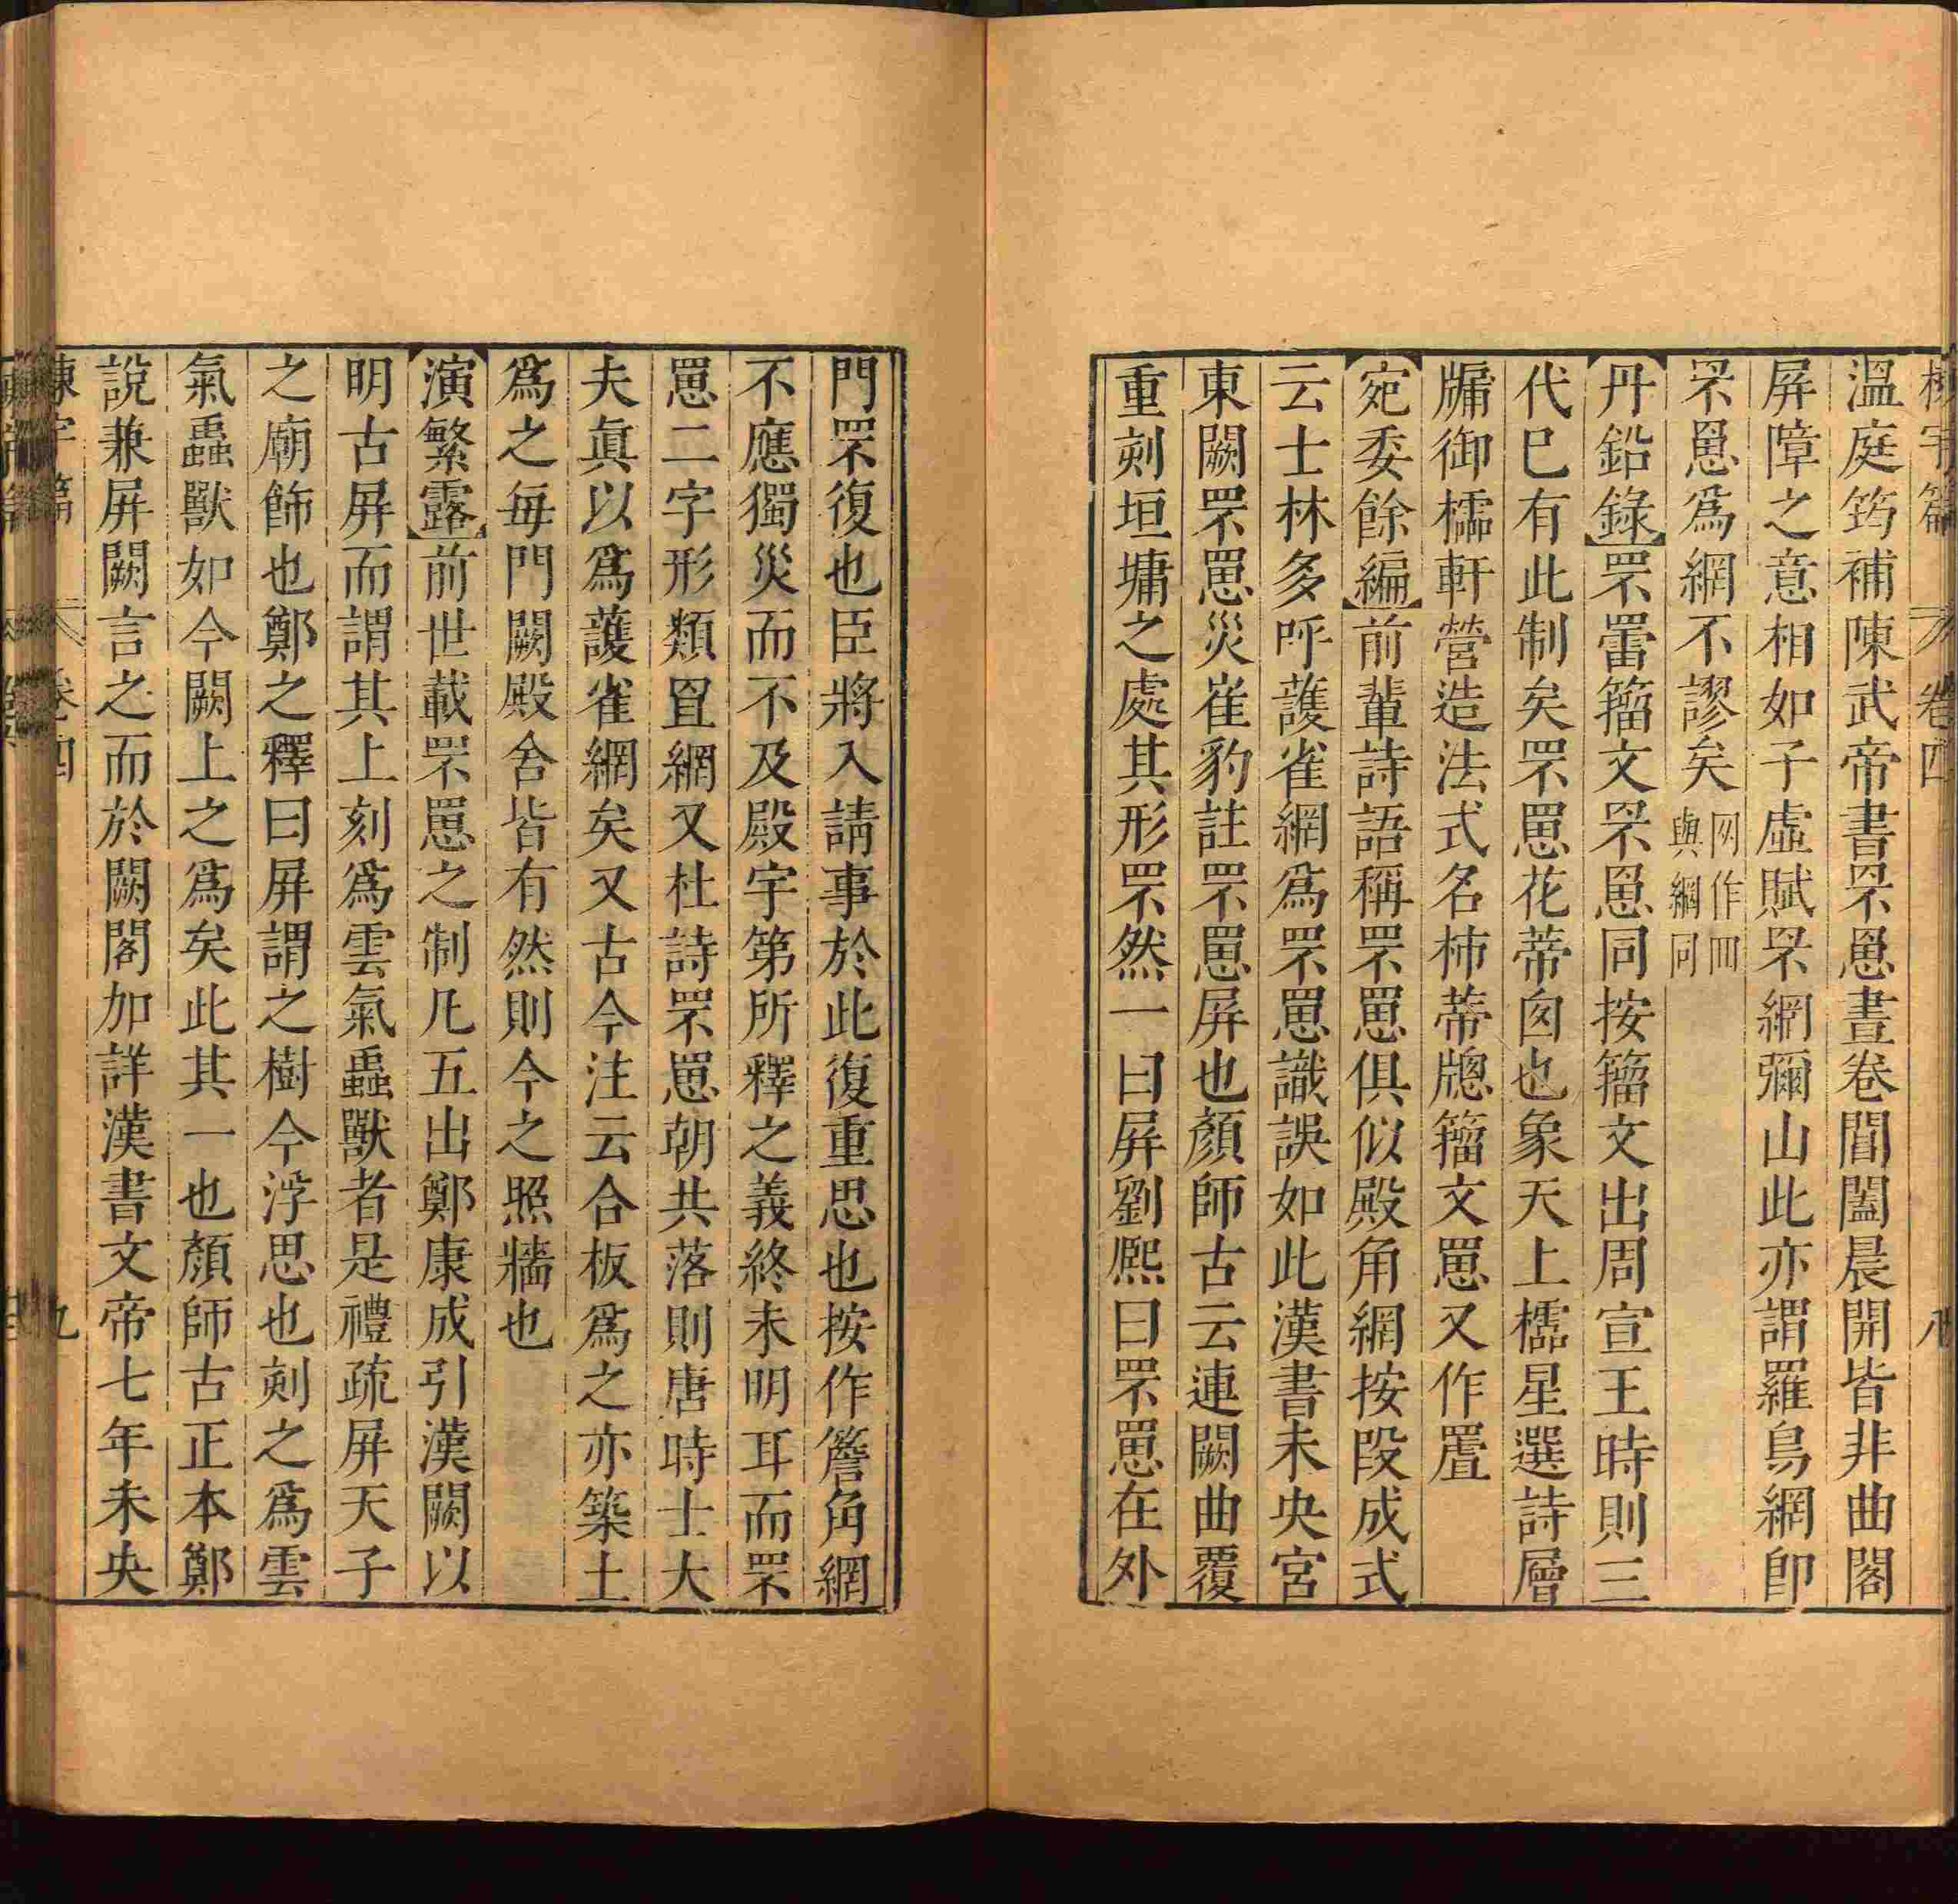 棟宇篇 卷四 八
溫庭筠補陳武帝書罘罳晝卷閶闔晨開皆非曲閣
屏障之意相如子虛賦罘網彌山此亦謂羅鳥網卽
罘罳爲網不謬矣网作罒與網同
丹鉛錄罘罍籀文罘罳同按籀文出周宣王時則三
代巳有此制矣罘罳花蒂囱也象天上櫺星選詩層
牗御櫺軒營造法式名柿蒂牎籀文罳又作罝
宛委餘編前輩詩語稱罘罳俱似殿角網按段成式
云士林多呼護雀網爲罘罳識誤如此漢書未央宮
東闕罘罳災崔豹註罘罳屏也顏師古云連闕曲覆
重刻垣墉之處其形罘然一曰屏劉熙曰罘罳在外
門罘復也臣將入請事於此復重思也按作簷角網
不應獨災而不及殿宇第所釋之義終未明耳而罘
罳二字形類罝網又杜詩罘罳朝共落則唐時士大
夫眞以爲護雀網矣又古今注云合板爲之亦築土
爲之每門闕殿舍皆有然則今之照牆也
演繁露前世載罘罳之制凡五出鄭康成引漢闕以
明古屏而謂其上刻爲雲氣蟲獸者是禮疏屏天子
之廟飾也鄭之釋曰屏謂之樹今浮思也刻之爲雲
氣蟲獸如今闕上之爲矣此其一也顏師古正本鄭
說兼屏闕言之而於闕閣加詳漢書文帝七年未央
棟宇篇 卷四 九